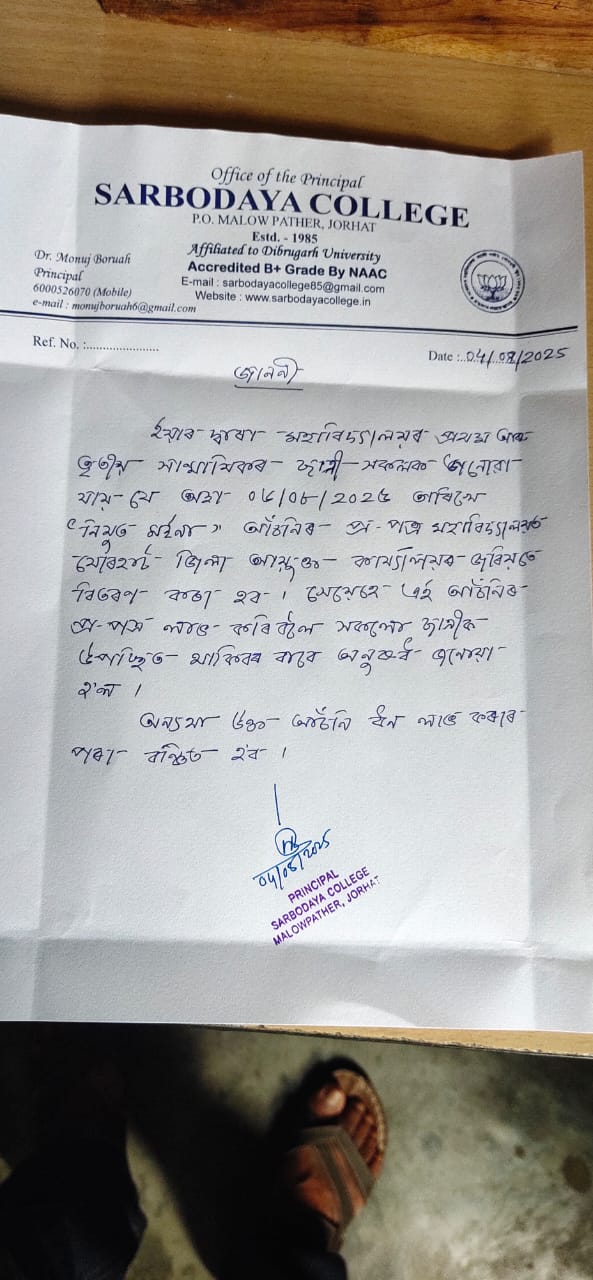 Office of the Principal
SARBODAYA COLLEGE
P.O. MALOW PATHER, JORHAT
Estd. - 1985
Affiliated to Dibrugarh University
Accredited B+ Grade By NAAC
E-mail : sarbodayacollege85@gmail.com
Website : www.sarbodayacollege.in
Dr. Monuj Boruah
Principal
6000526070 (Mobile)
e-mail : monujboruah6@gmail.com
Ref. No. :......................
Date :..04/08/2025
জাননী
ইয়াৰ দ্বাৰা মহাবিদ্যালয়ৰ প্ৰথম আৰু
তৃতীয় ষান্মাসিকৰ ছাত্ৰী সকলক জনোৱা
যায় যে অহা ০৬/০৮/২০২৫ তাৰিখে
"নিযুত মইনা" আঁচনিৰ প্ৰ-পত্ৰ মহাবিদ্যালয়ত
যোৰহাট জিলা আয়ুক্ত কাৰ্য্যালয়ৰ জৰিয়তে
বিতৰণ কৰা হব । সেয়েহে এই আঁচনিৰ
প্ৰ-পত্ৰ লাভ কৰিবলৈ সকলো ছাত্ৰীক
উপস্থিত থাকিবৰ বাবে অনুৰোধ জনোৱা
হ'ল ।
অন্যথা উক্ত আঁচনি ধন লাভ কৰাৰ
পৰা বঞ্চিত হ'ব ।
04/08/2025
PRINCIPAL
SARBODAYA COLLEGE
MALOWPATHER, JORHAT